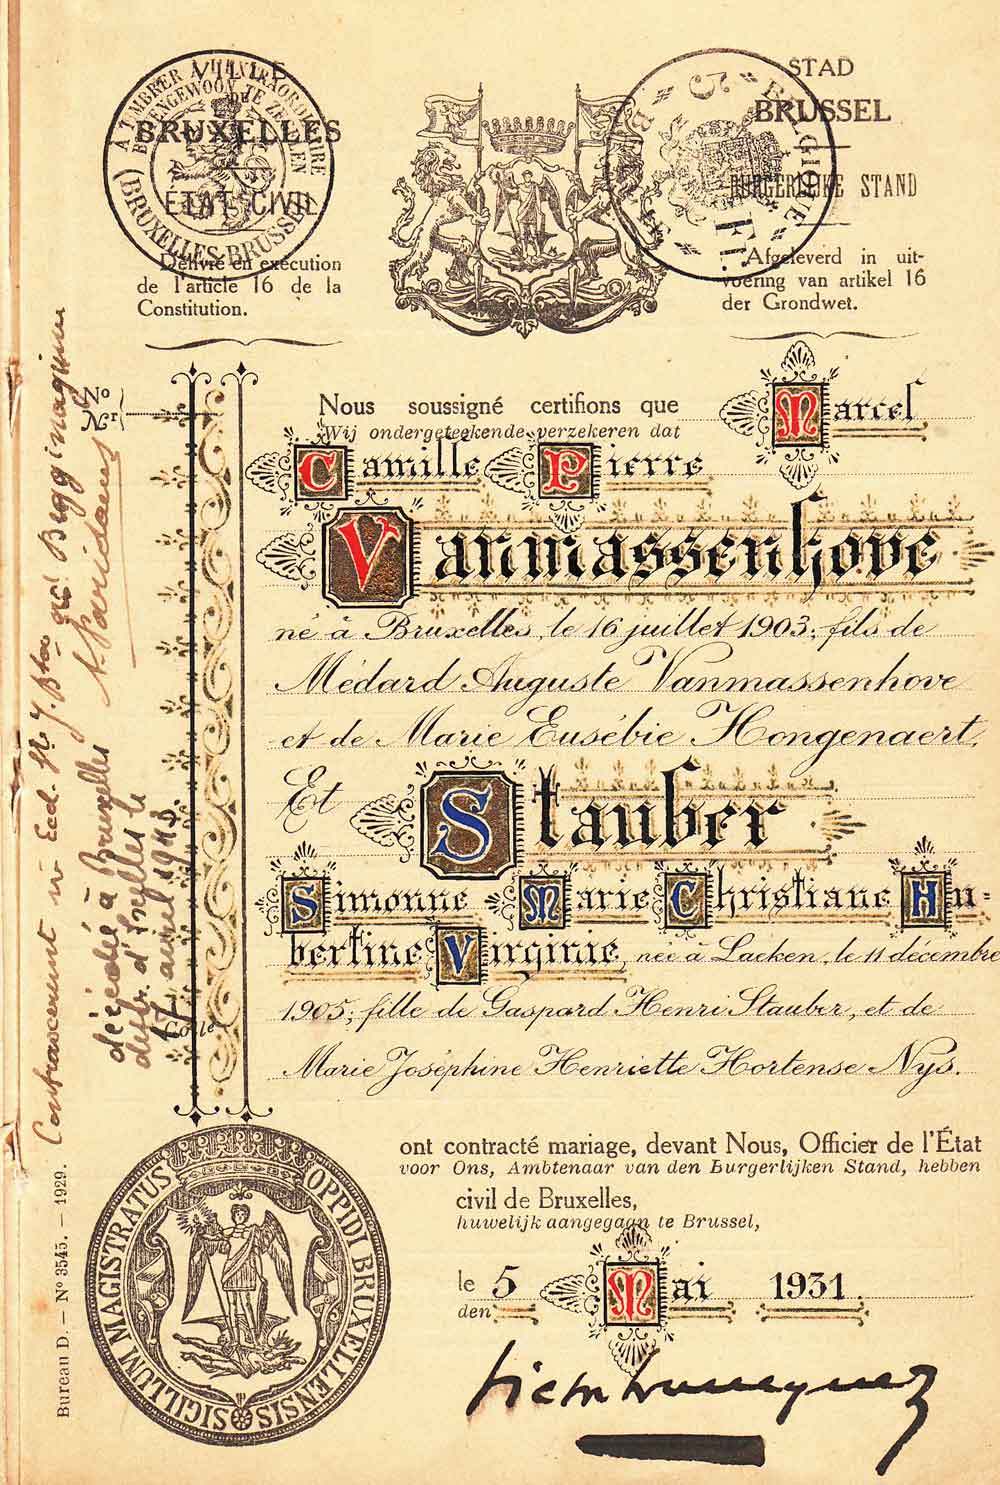 VILLE
DE
BRUXELLES
ÉTAT CIVIL
Délivré en exécution
de l'article 16 de la
Constitution.
A TIMBRER A L'EXTRAORDINAIRE
BUITENGEWOON TE ZEGELEN
(BRUXELLES-BRUSSEL)
STAD
BRUSSEL
BURGERLIJKE STAND
Afgeleverd in uit-
voering van artikel 16
der Grondwet.
BELGIQUE
5 Fr.
No
Nr
Nous soussigné certifions que Marcel
Wij ondergeteekende verzekeren dat
Camille Pierre
Vanmassenhove
né à Bruxelles, le 16 juillet 1903; fils de
Médard Auguste Vanmassenhove
et de Marie Eusébie Hongenaert.
Et Stauber
Simonne Marie Christiane Hu-
bertine Virginie, née à Laeken, le 11 décembre
1905; fille de Gaspard Henri Stauber, et de
Marie Joséphine Henriette Hortense Nys.
ont contracté mariage, devant Nous, Officier de l'État
voor Ons, Ambtenaar van den Burgerlijken Stand, hebben
civil de Bruxelles,
huwelijk aangegaan te Brussel,
le 5 Mai 1931.
den
SIGILLUM MAGISTRATUS OPPIDI BRUXELLENSIS
Bureau D. — No 3545. — 1929.
décédé à Bruxelles
distr. d'Ixelles le
17 avril 1943.